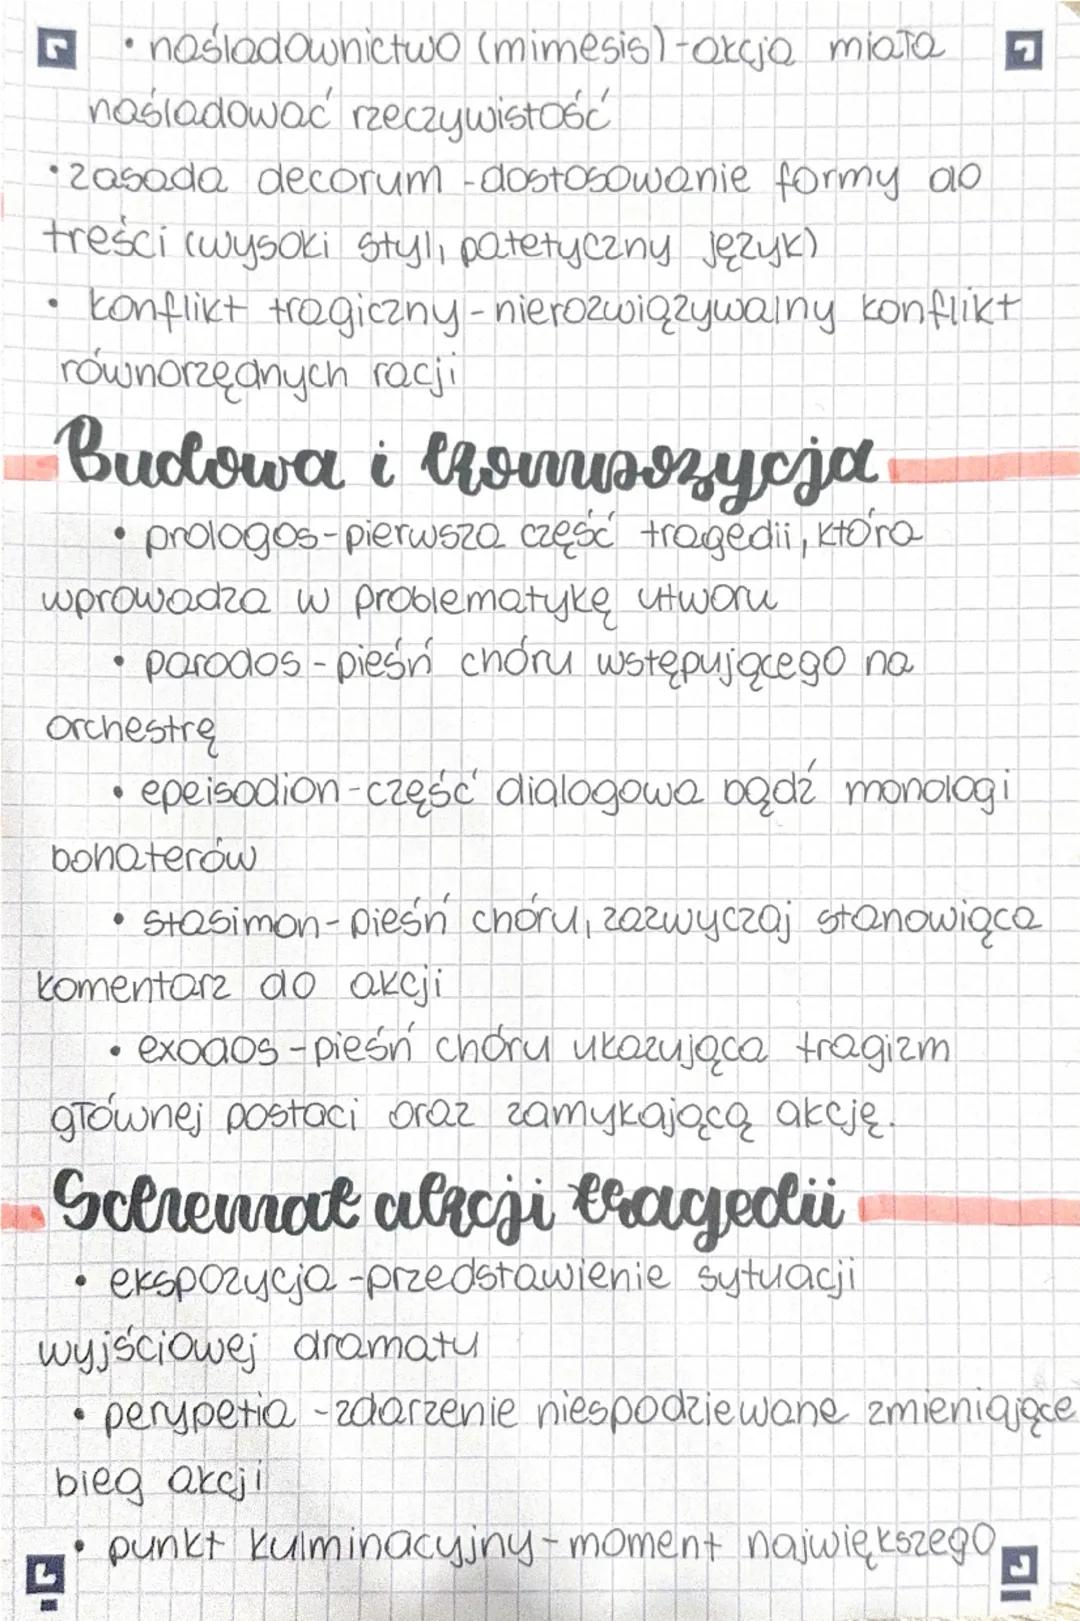 • naśladownictwo (mimesis) - akcja miała
naśladować rzeczywistość
• zasada decorum - dostosowanie formy do
treści (wysoki styl, patetyczny język)
• konflikt tragiczny - nierozwiązywalny konflikt
równorzędnych racji
Budowa i kompozycja
• prologos - pierwsza część tragedii, która
wprowadza w problematykę utworu
• parodos - pieśń chóru wstępującego na
orchestrę
• epeisodion - część dialogowa bądź monologi
bohaterów
• stasimon - pieśń chóru, zazwyczaj stanowiąca
komentarz do akcji
• exodos - pieśń chóru ukazująca tragizm
głównej postaci oraz zamykającą akcję.
Schemat akcji tragedii
• ekspozycja - przedstawienie sytuacji
wyjściowej dramatu
• perypetia - zdarzenie niespodziewane zmieniające
bieg akcji
• punkt kulminacyjny - moment największego